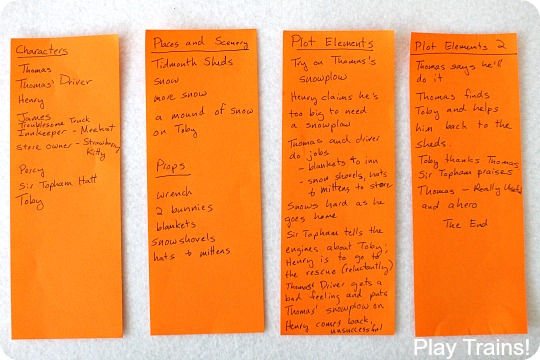 Characters
Thomas
Thomas' Driver
Henry
James
Troublesome Truck
Innkeeper - Meerkat
store owner - Strawberry
Kitty
Percy
Sir Topham Hatt
Toby
Places and Scenery
Tidmouth Sheds
snow
more snow
a mound of snow
on Toby
Props
wrench
2 bunnies
blankets
snowshovels
hats + mittens
Plot Elements
Try on Thomas's
snowplow
Henry claims he's
too big to need
a snowplow
Thomas and driver
do jobs
- blankets to inn
- snow shovels, hats
+ mittens to store
Snows hard as he
goes home
Sir Topham tells the
engines about Toby;
Henry is to go to
the rescue (reluctantly)
Thomas' Driver gets a
bad feeling and puts
Thomas' snowplow on
Henry comes back,
unsuccessful
Plot Elements 2
Thomas says he'll
do it
Thomas finds
Toby and helps
him back to the
sheds.
Toby thanks Thomas
Sir Topham praises
Thomas - Really Useful
and a hero
The End
Play Trains!